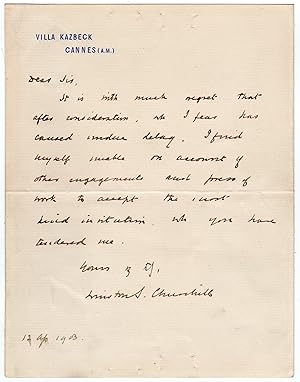 VILLA KAZBECK
CANNES (A.M.)
Dear Sir,
It is with much regret that
after consideration, wh I fear has
caused undue delay, I find
myself unable on account of
other engagements and press of
work to accept the most
kind invitation wh you have
tendered me.
Yours
Winston S. Churchill
12 Ap 1903.